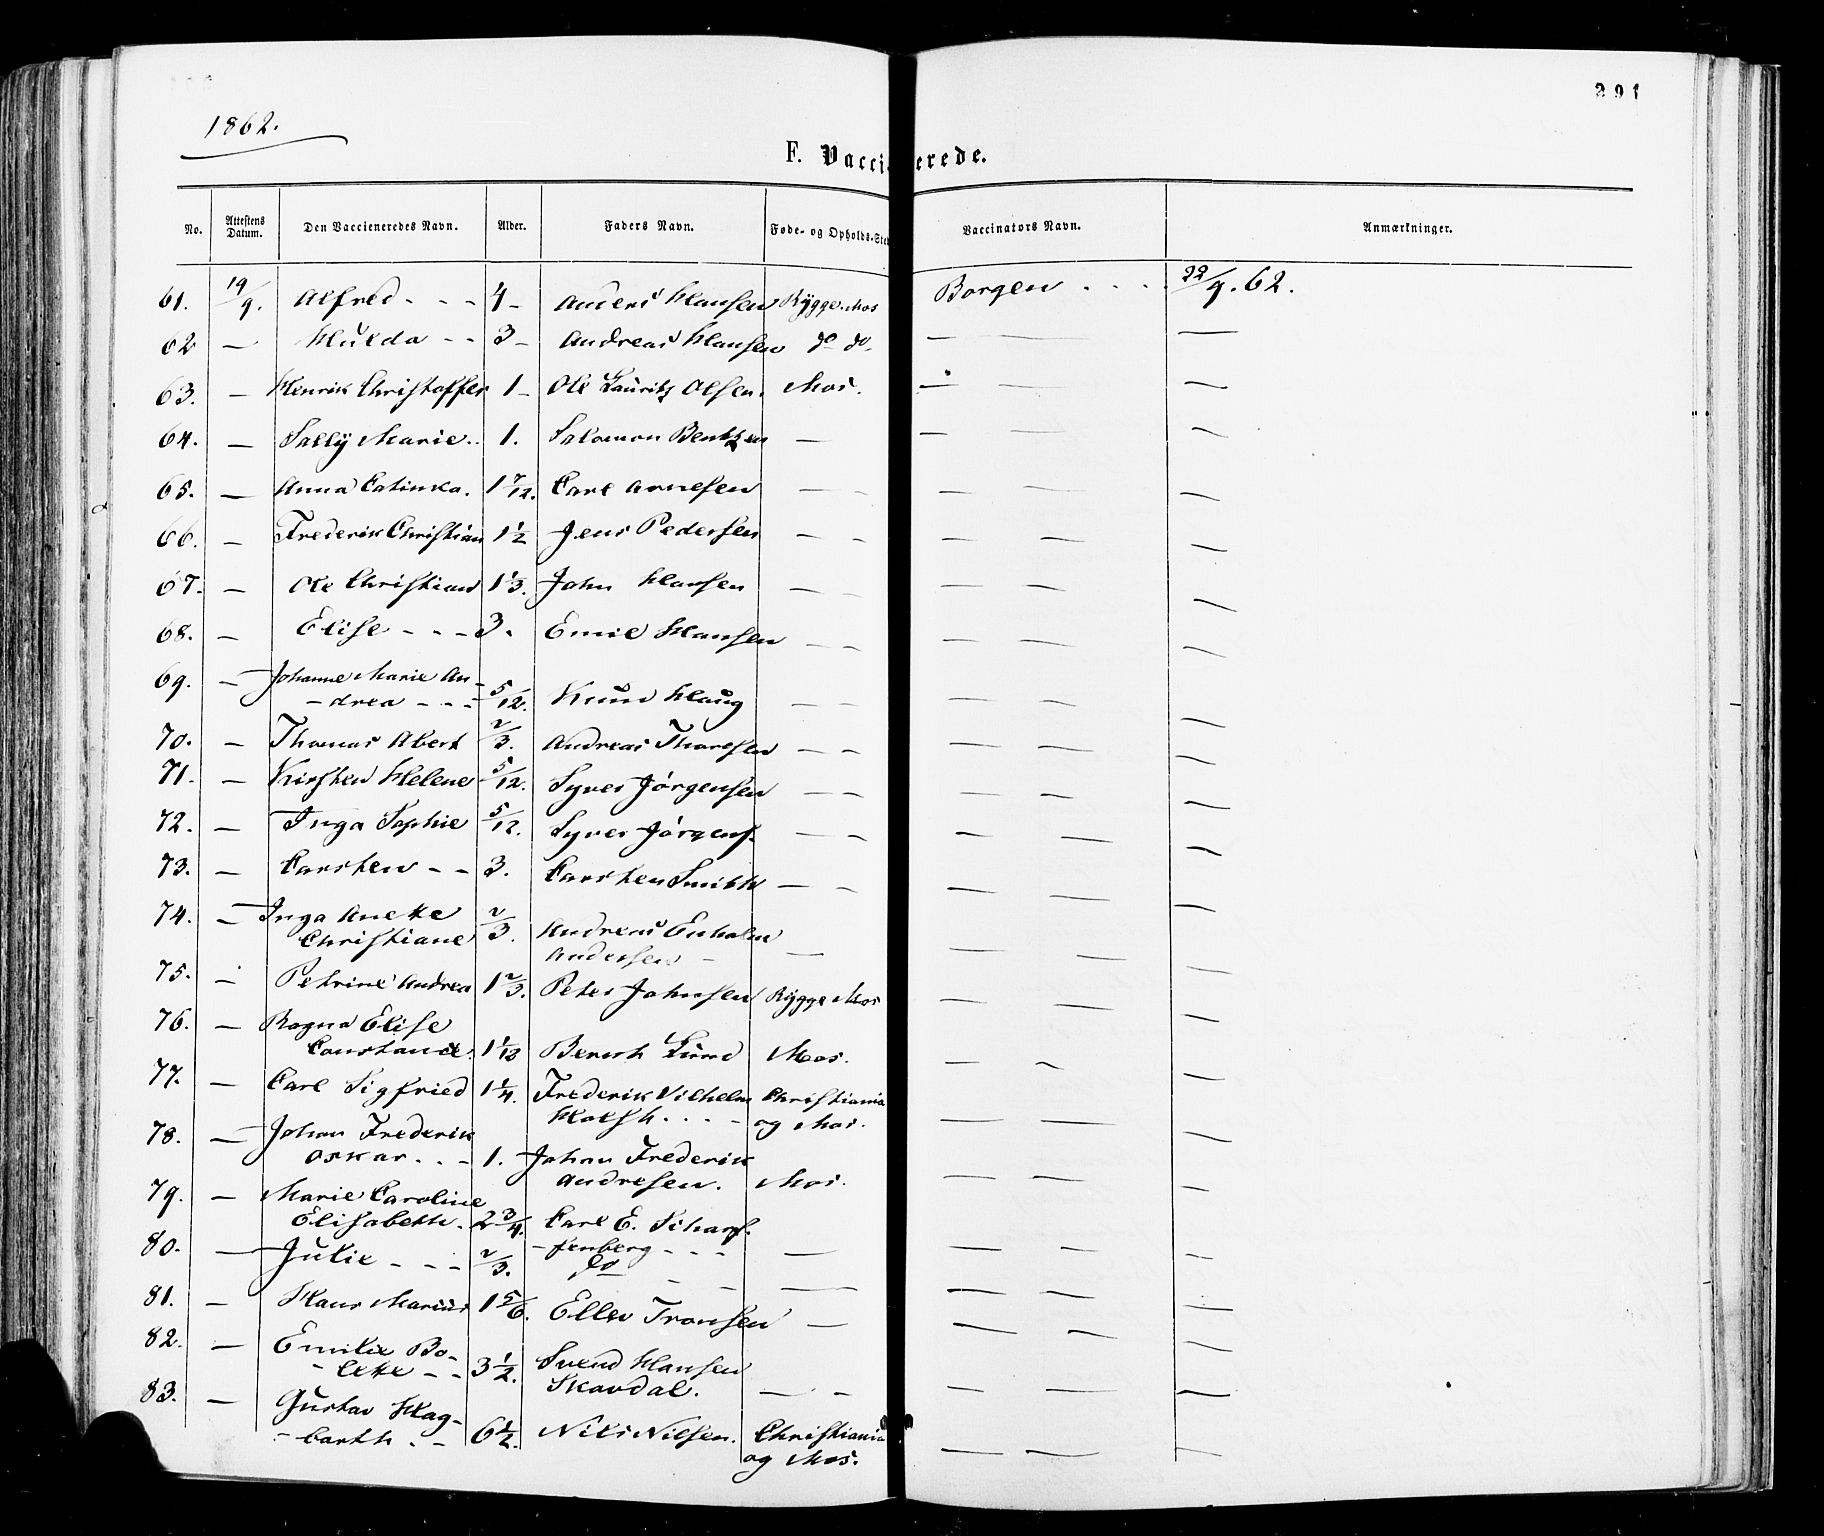 291
1862.
F. Vaccienerede.
No. Attestens Datum. Den Vaccieneredes Navn. Alder. Faders Navn. Føde- og Opholds-Sted Vaccinators Navn. Anmærkninger.
61. 19/9. Alfred - - - 4 - Anders Hansen Rygge. Mos Borgen . . . . 22/9. 62.
62 — Hulda - - 3 - Andreas Hansen do do. — — —
63. — Henrik Christoffer 1 - Ole Lauritz Olsen. Mos. — — —
64. — Sally Marie.. 1. Salomon Bentzen — — — —
65. — Anna Catinka. 1 7/12. Carl Arnesen — - — — —
66. — Frederik Christian 1 1/2 Jens Pedersen — - — — —
67. — Ole Christian 1 1/3. John Hansen — - — — —
68. — Elise - - - 3. Emil Hansen — - — — —
69. — Johanne Marie An-
- drea - - - 5/12. Knud Haug — - — — —
70. — Thomas Albert 2/3. Andreas Thoresen — - — — —
71. — Kirsten Helene 5/12. Syver Jørgensen — - — — —
72. — Inga Sophie 5/12. Syver Jørgens. — - — — —
73. — Carsten - - 3. Carsten Smith — - — — —
74. — Inga Anette
Christiane 2/3. Andreas Enholm
Andersen - — — — —
75. - Petrine Andrea 1 2/3. Peter Johnsen Rygge Mos — — —
76. — Ragna Elise
Constance. 1 1/12 Bernt Lund Mos. — - —
77. — Carl Sigfried 1 1/4. Frederik Vilhelm Christiania
Holst. . . - og Mos. — — —
78. — Johan Frederik
Oskar. . . - 1. Johan Frederik
Andresen. Mos. — — —
79. — Marie Caroline
Elisabeth. 2 3/4. Carl E. Scharf-
- fenberg - - - — — — —
80. — Julie - - - 2/3. do - - — — — —
81. — Hans Marius 1 5/6. Ellev Tronsen — — — —
82. — Emilie Bo-
- lette - - 3 1/2. Svend Hansen
Skavdal. — - — — —
83. — Gustav Hag-
- barth. - - 6 1/2. Nils Nilsen. Christiania
og Mos. — — —